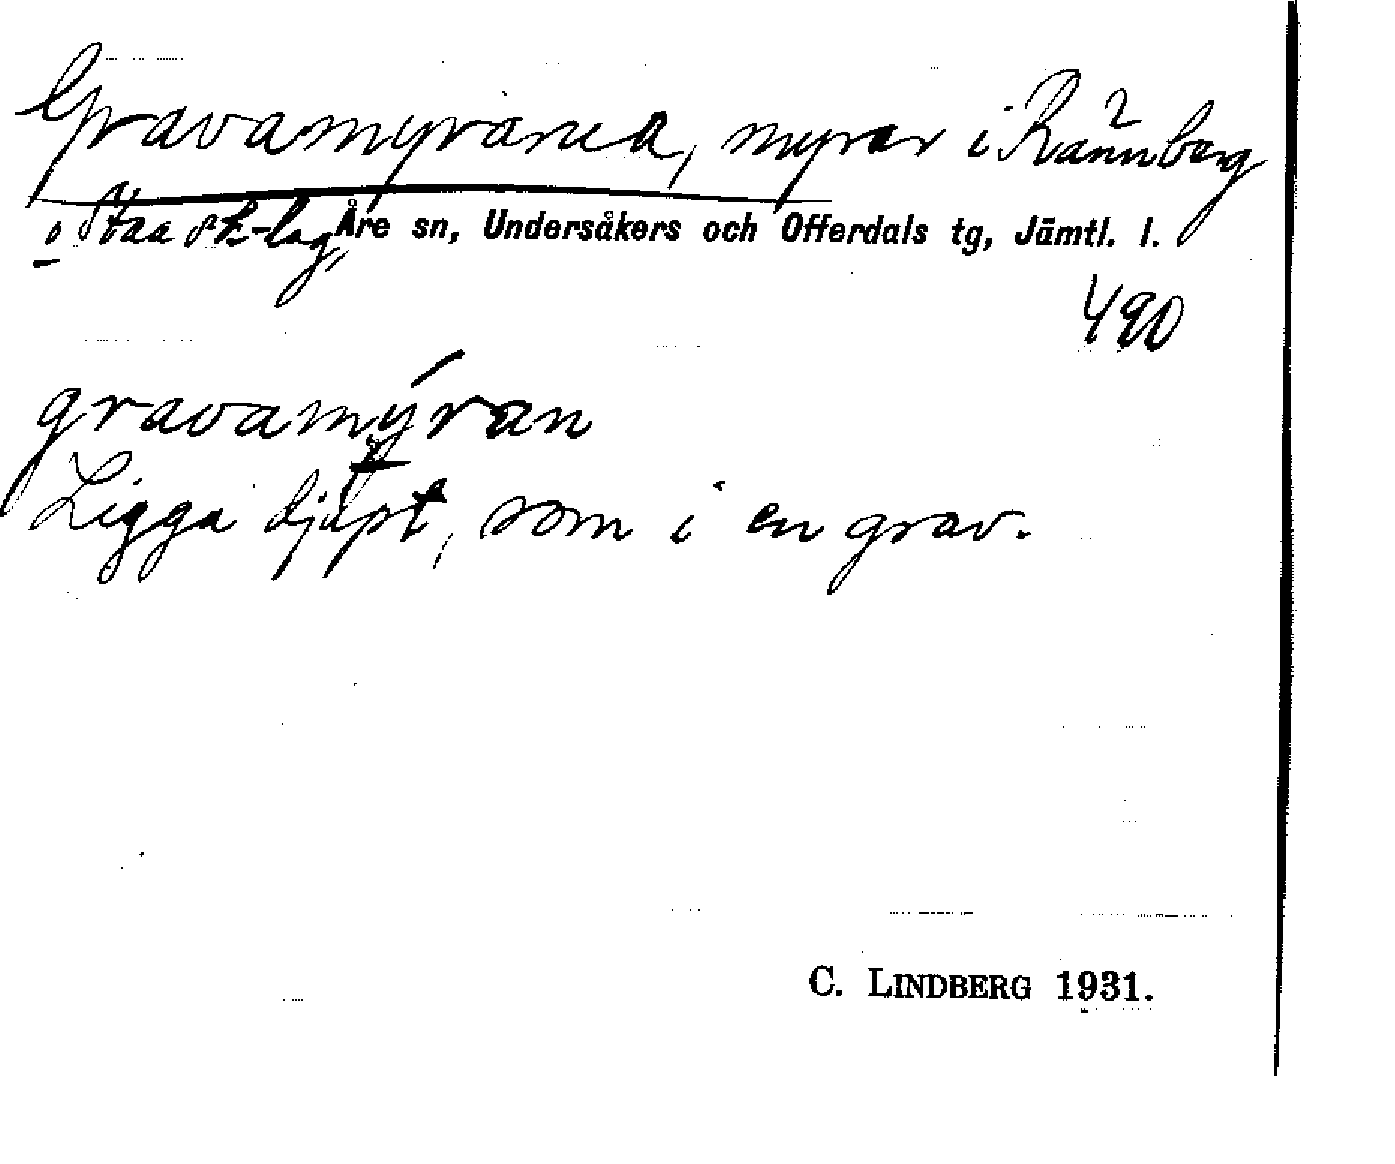 Gravamyrarna, myrar i Rännberg
i Staa sk-lag, Åre sn, Undersåkers och Offerdals tg, Jämtl. l.
490
gravamýran
Ligga djupt, som i en grav.
C. LINDBERG 1931.